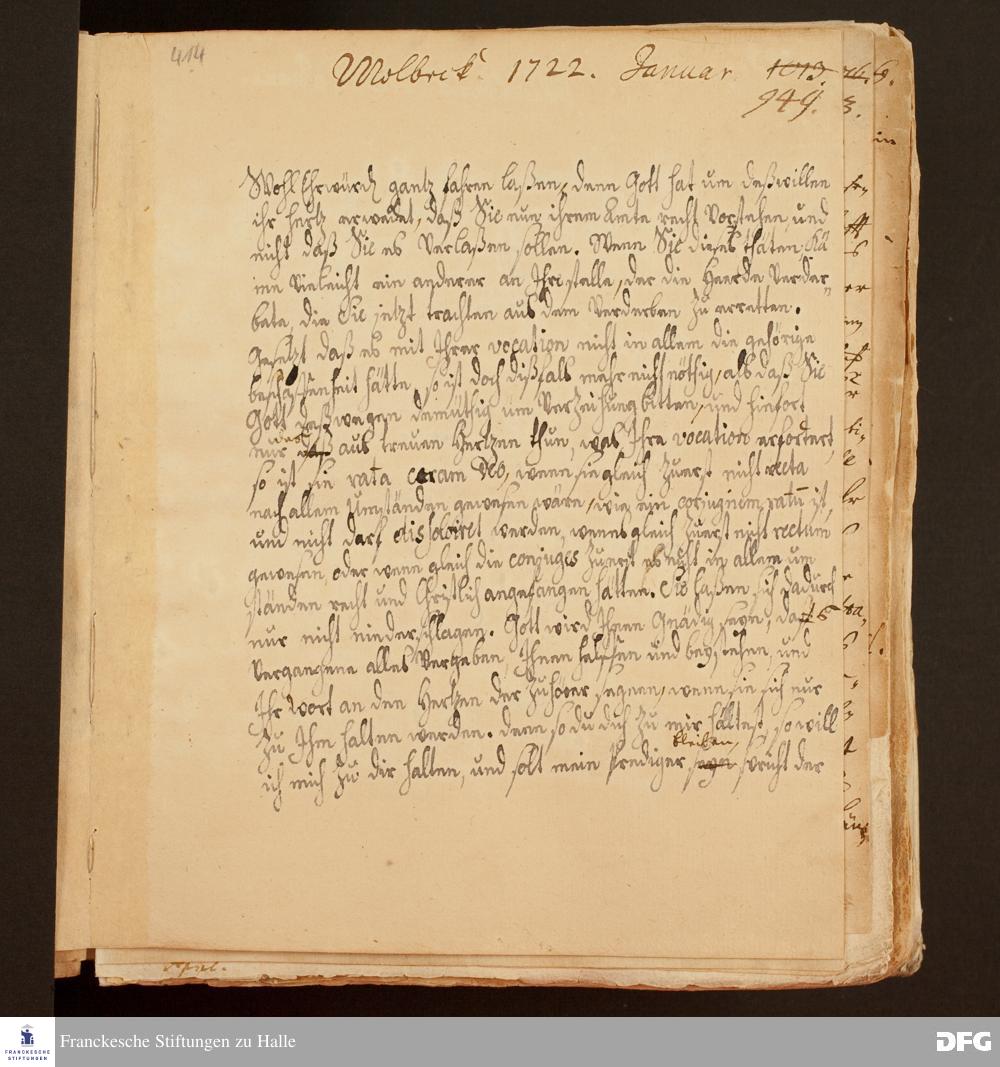 414
Molbeck 1722. Januar 1013.
949.
WohlEhrwürd. gantz fahren laßen, denn Gott hat um deßwillen
ihr hertz erwecket, daß Sie nun ihrem Amte recht vorstehen, und
nicht daß Sie es verlaßen sollen. Wenn Sie dieses thäten, kä
me vieleicht ein anderer an Ihre stelle, der die Heerde verder=
bete, die Sie jetzt trachten aus dem Verderben zu erretten.
Gesetzt daß es mit Ihrer vocation nicht in allem die gehörige
beschaffenheit hätte, so ist doch dißfals mehr nicht nöthig, als daß Sie
Gott deßwegen demüthig um Verzeihung bitten, und hinfort
nur das aus treuen Hertzen thun, was Ihre vocation erfodert,
so ist sie rata coram Deo, wenn sie gleich zuerst nicht recta
nach allem Umständen gewesen wäre, wie ein conjugium ratum ist,
und nicht darf dissolviret werden, wenns gleich zuerst nicht rectum
gewesen, oder wenn gleich die conjuges zuerst es nicht in allem um
ständen recht und Christlich angefangen hätten. Sie laßen sich dadurch
nur nicht niederschlagen. Gott wird Ihnen Gnädig seyn, das
vergangene alles vergeben, Ihnen helffen und beystehen, und
Ihr Wort an den Hertzen der Zuhörer segnen, wenn sie sich nur
zu Ihm halten werden. denn so du dich zu mir hältest, so will
ich mich zu dir halten, und solt mein Prediger bleiben, spricht der
Franckesche Stiftungen zu Halle
DFG
FRANCKESCHE
STIFTUNGEN